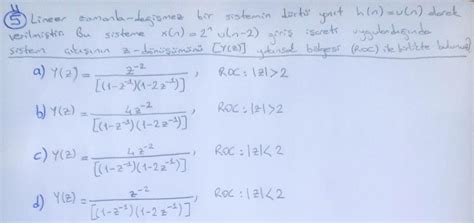 5) Lineer zamanla-değişmez bir sistemin dürtü yanıt h(n)=u(n) olarak
verilmiştir. Bu sisteme x(n)=2ⁿ u(n-2) giriş işareti uygulandığında
sistem çıkışının z-dönüşümünü [Y(z)] yakınsal bölgesi (ROC) ile birlikte bulunuz?
a) Y(z) = z⁻² / [(1-z⁻¹)(1-2z⁻¹)] , ROC: |z|>2
b) Y(z) = 4z⁻² / [(1-z⁻¹)(1-2z⁻¹)] , ROC: |z|>2
c) Y(z) = 4z⁻² / [(1-z⁻¹)(1-2z⁻¹)] , ROC: |z|<2
d) Y(z) = z⁻² / [(1-z⁻¹)(1-2z⁻¹)] , ROC: |z|<2